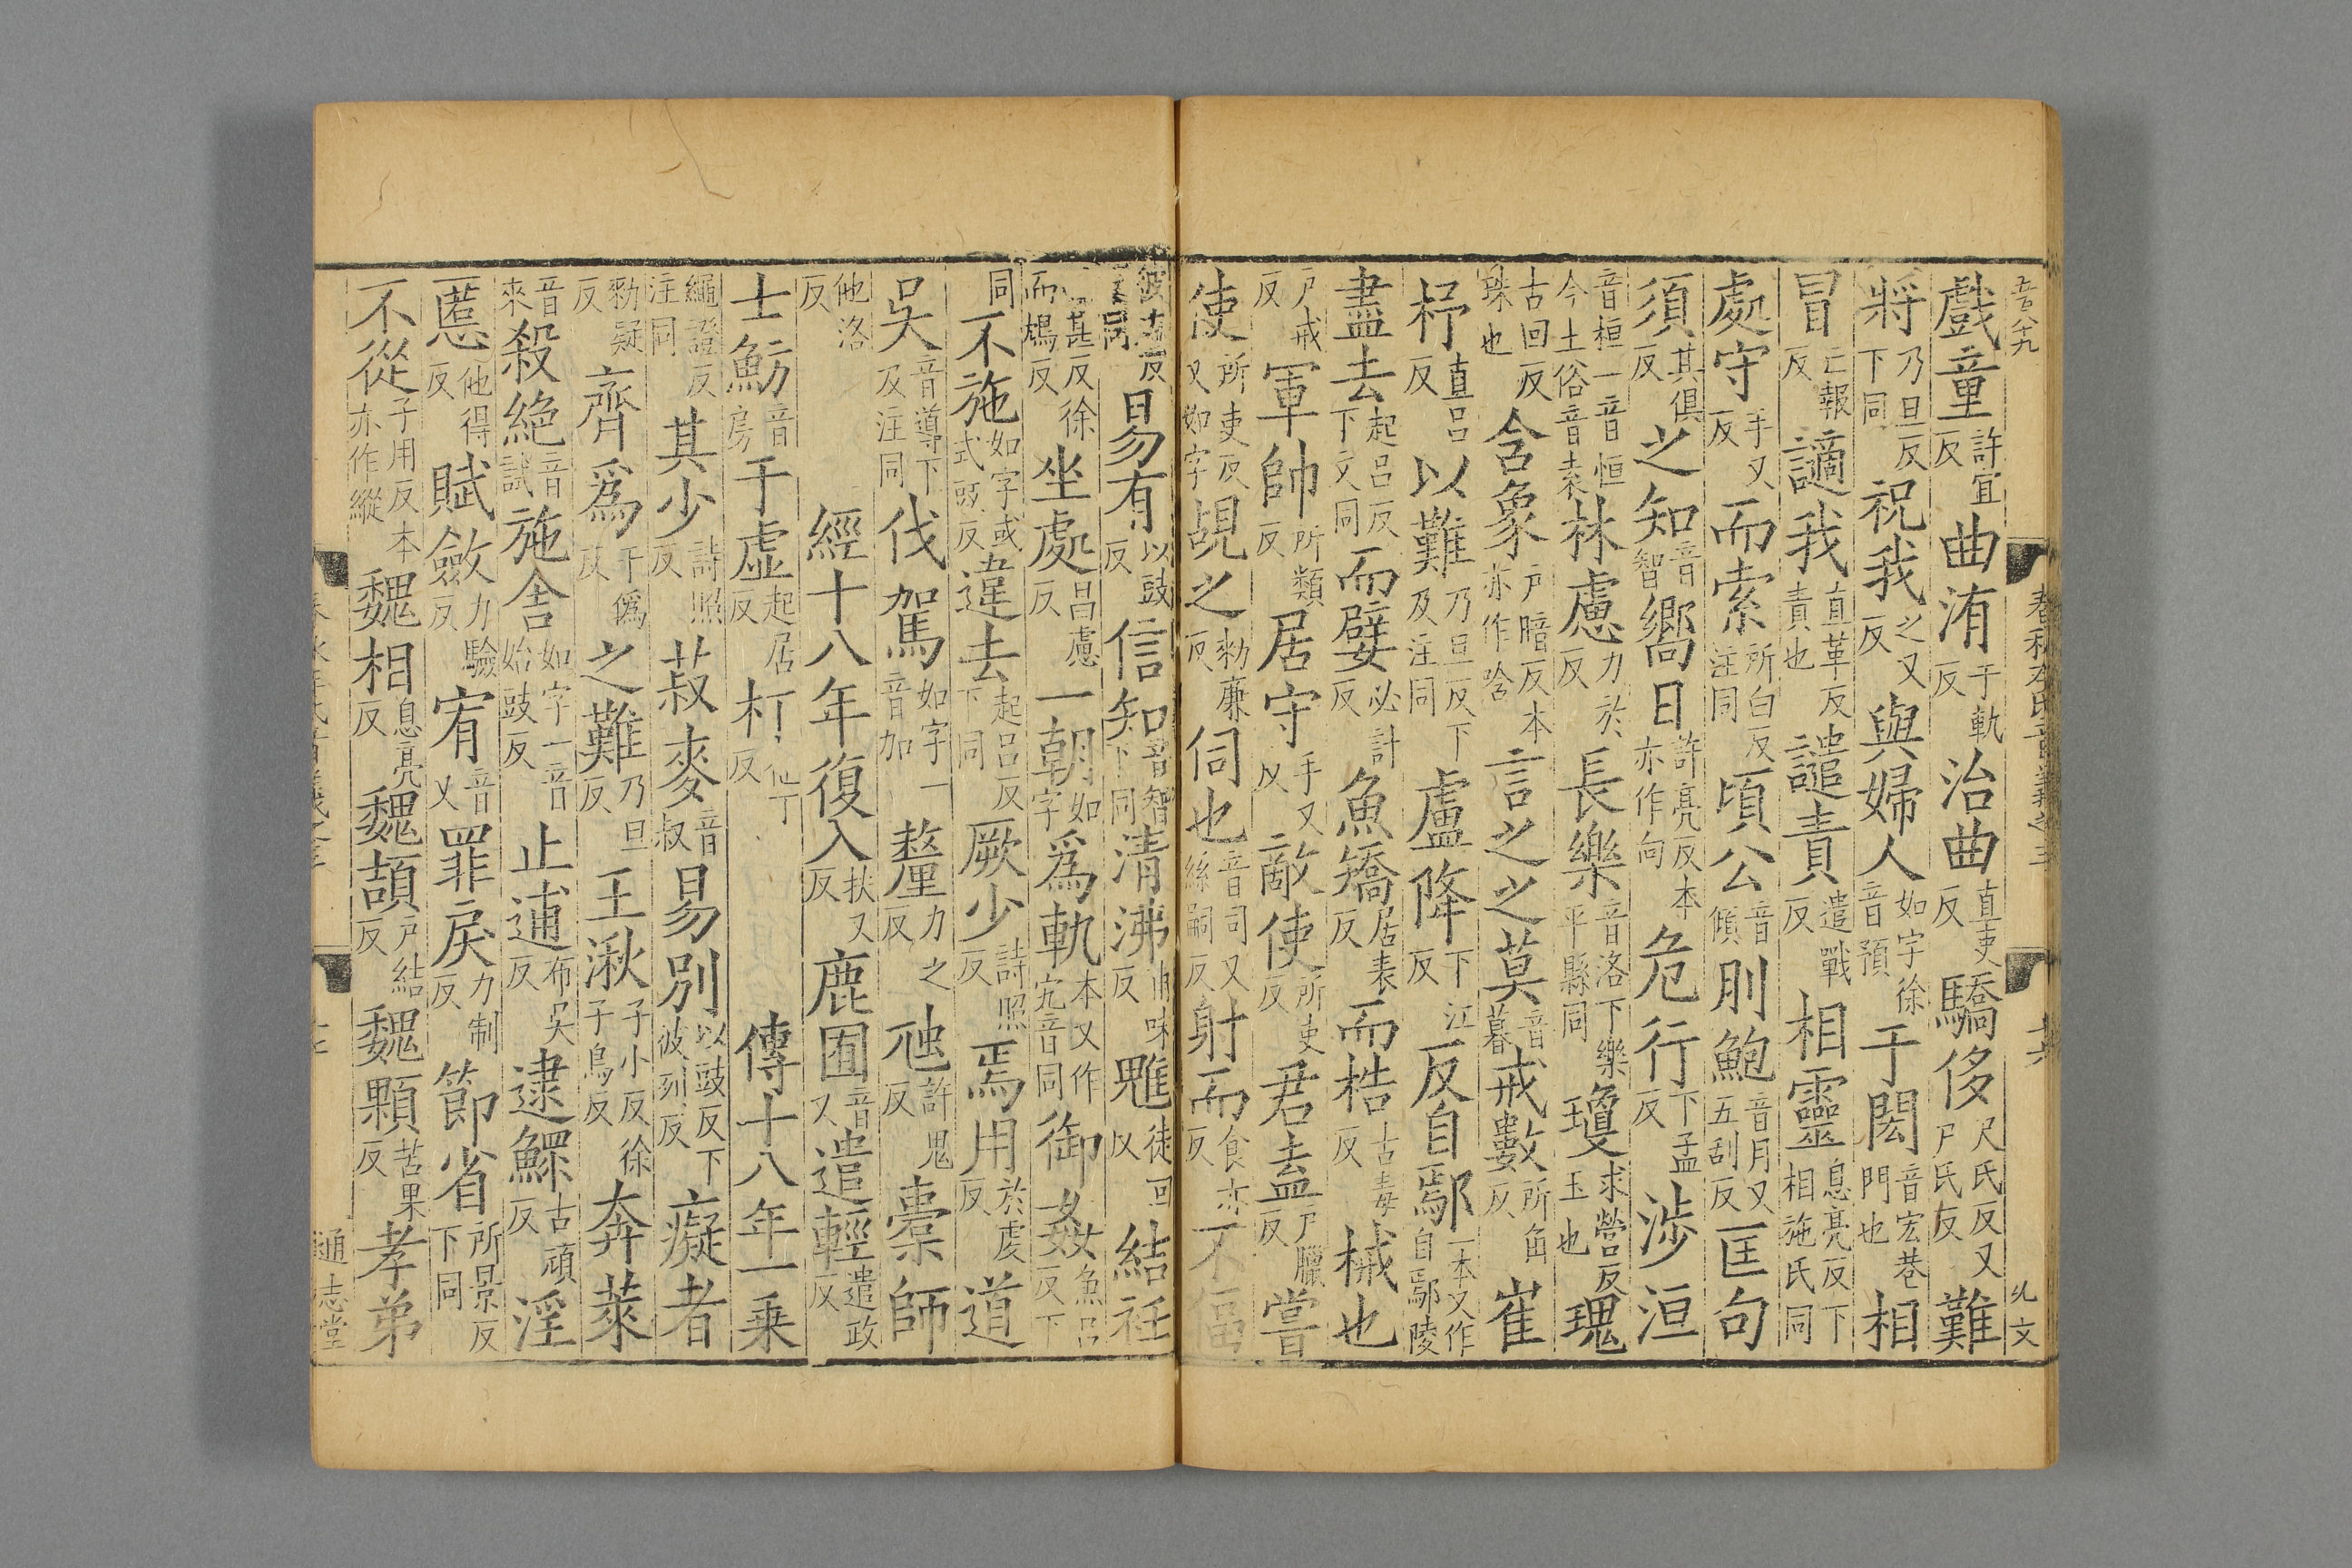 戲童許宜反曲洧于軌反治曲直吏反驕侈尺氏反又尸氏反難
將乃旦反下同祝我之又反與婦人如字徐音預于閎音宏巷門也相
冒亡報反讁我直革反責也譴責遣戰反相靈息亮反下相施氏同
處守手又反而索所白反注同頃公音傾刖鮑音月又五刮反匡句
須其俱反之知音智嚮日許亮反本亦作向危行下孟反涉洹
音桓一音恒今土俗音袁林慮力於反長樂音洛下樂平縣同瓊求營反玉也瑰
古回反珠也含象戶暗反本亦作唅言之之莫音暮戒數所角反崔
杼直呂反以難乃旦反下及注同盧降下江反反自鄢一本又作自鄢陵
盡去起呂反下文同而嬖必計反魚矯居表反而梏古毒反械也
戶戒反軍帥所類反居守手又反敵使所吏反君盍戶臘反嘗
使所吏反又如字覘之勑廉反伺也音司又絲嗣反射而食亦反不偪
彼力反易有以豉反信知音智下同清沸甫味反魋徒回反結衽
而甚反徐而鴆反坐處昌慮反一朝如字爲軌本又作宄音同御姦魚呂反下
同不施如字或式豉反違去起呂反下同厥少詩照反焉用於虔反道
吳音導下及注同伐駕如字一音加釐力之反虺許鬼反櫜師
他洛反經十八年復入扶又反鹿囿音又遣輕遣政反
士魴音房于虛起居反朾他丁反傳十八年一乗
繩證反注同其少詩照反菽麥音叔易別以豉反下彼列反癡者
勑疑反齊爲于僞反之難乃旦反王湫子小反徐子鳥反奔萊
音來殺絕音試施舍如字一音始豉反止逋布吳反逮鰥古頑反淫
慝他得反賦斂力驗反宥音又罪戾力制反節省所景反下同
不從子用反本亦作縱魏相息亮反魏頡戶結反魏顆苦果反孝弟
通志堂